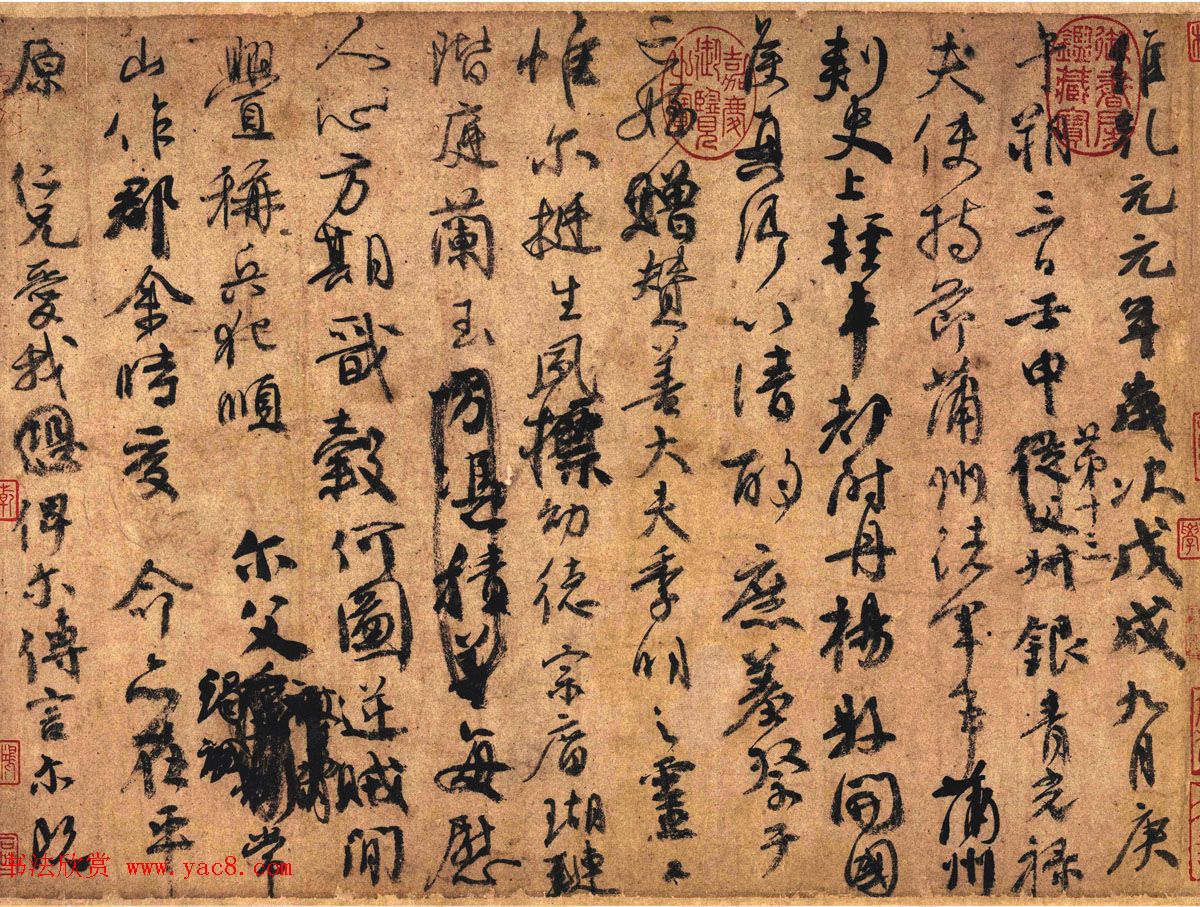 維乾元元年歲次戊戌九月庚
午朔三日壬申第十三從父叔銀青光祿
夫使持節蒲州諸軍事蒲州
刺史上輕車都尉丹楊縣開國
侯真卿以清酌庶羞祭于
亡姪贈贊善大夫季明之靈曰
惟尔挺生夙標幼德宗廟瑚璉
階庭蘭玉方憑積善每慰
人心方期戩穀何圖逆賊閒
釁稱兵犯順尔父竭誠常
山作郡余時受命亦在平
原仁兄愛我恐俾尔傳言尔既
御書房鑑藏寶
嘉慶御覽之寶
书法欣赏 www.yac8.com